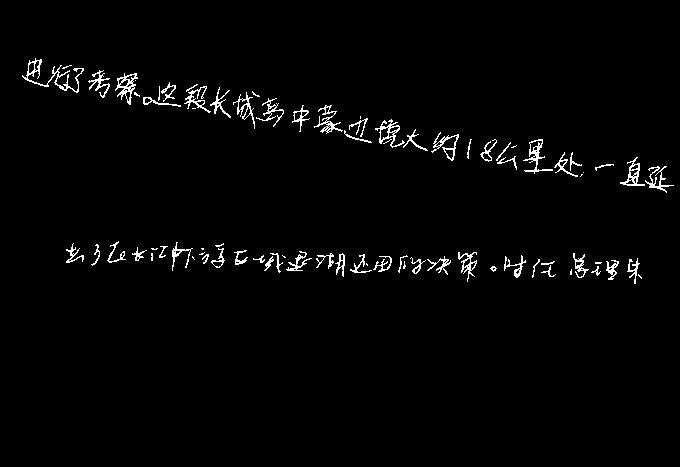 进行了考察。这段长城离中蒙边境大约18公里处,一直延
出了在长江中下游区域退湖还田的决策。时任总理朱